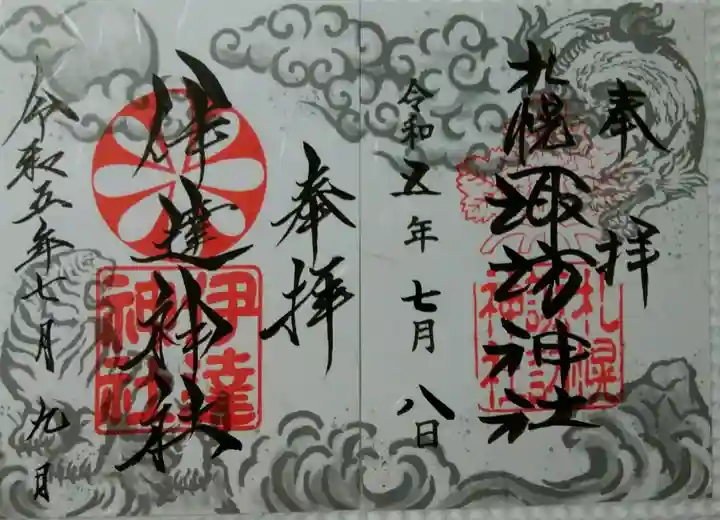 奉拝
札幌諏訪神社
札幌諏訪神社
令和五年七月八日
奉拝
伊達神社
伊達神社
令和五年七月九日